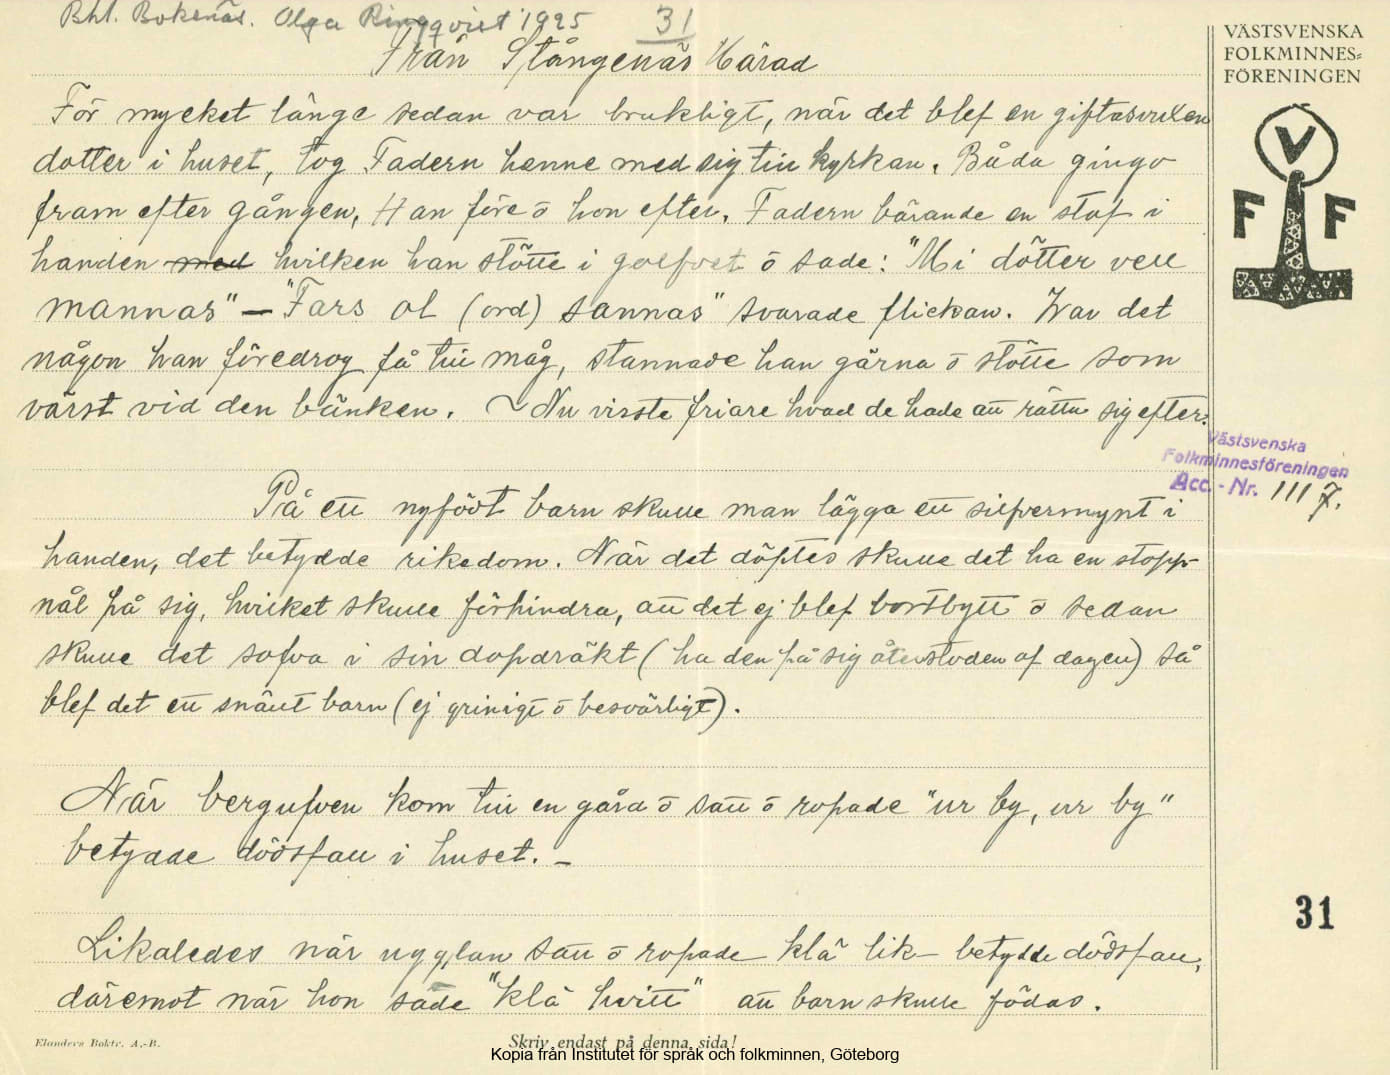 Bhl. Bokenäs. Olga Ringqvist 1925 31
Från Stångenäs Härad
För mycket länge sedan var brukligt, när det blef en giftasvuxen
dotter i huset, tog Fadern henne med sig till kyrkan. Båda gingo
fram efter gången, Han före o hon efter. Fadern bärande en staf i
handen med hvilken han stötte i golfvet o sade: "Mi dötter vell
mannas" — "Fars ol (ord) sannas" svarade flickan. Var det
någon han föredrog få till måg, stannade han gärna o stötte som
värst vid den bänken. ~ Nu visste friare hvad de hade att rätta sig efter.
På ett nyfödt barn skulle man lägga ett silfvermynt i
handen, det betydde rikedom. När det döptes skulle det ha en stopp-
nål på sig, hvilket skulle förhindra, att det ej blef bortbytt o sedan
skulle det sofva i sin dopdräkt (ha den på sig återstoden af dagen) så
blef det ett snällt barn (ej grinigt o besvärligt).
När bergufven kom till en gård o satt o ropade "ur by, ur by"
betydde dödsfall i huset. –
Likaledes när ugglan satt o ropade klä lik – betydde dödsfall,
däremot när hon sade "klä hvitt" att barn skulle födas.
VÄSTSVENSKA
FOLKMINNES=
FÖRENINGEN
V
F F
Västsvenska
Folkminnesföreningen
Acc. - Nr. 1117.
31
Elanders Boktr. A.-B.
Skriv endast på denna sida!
Kopia från Institutet för språk och folkminnen, Göteborg